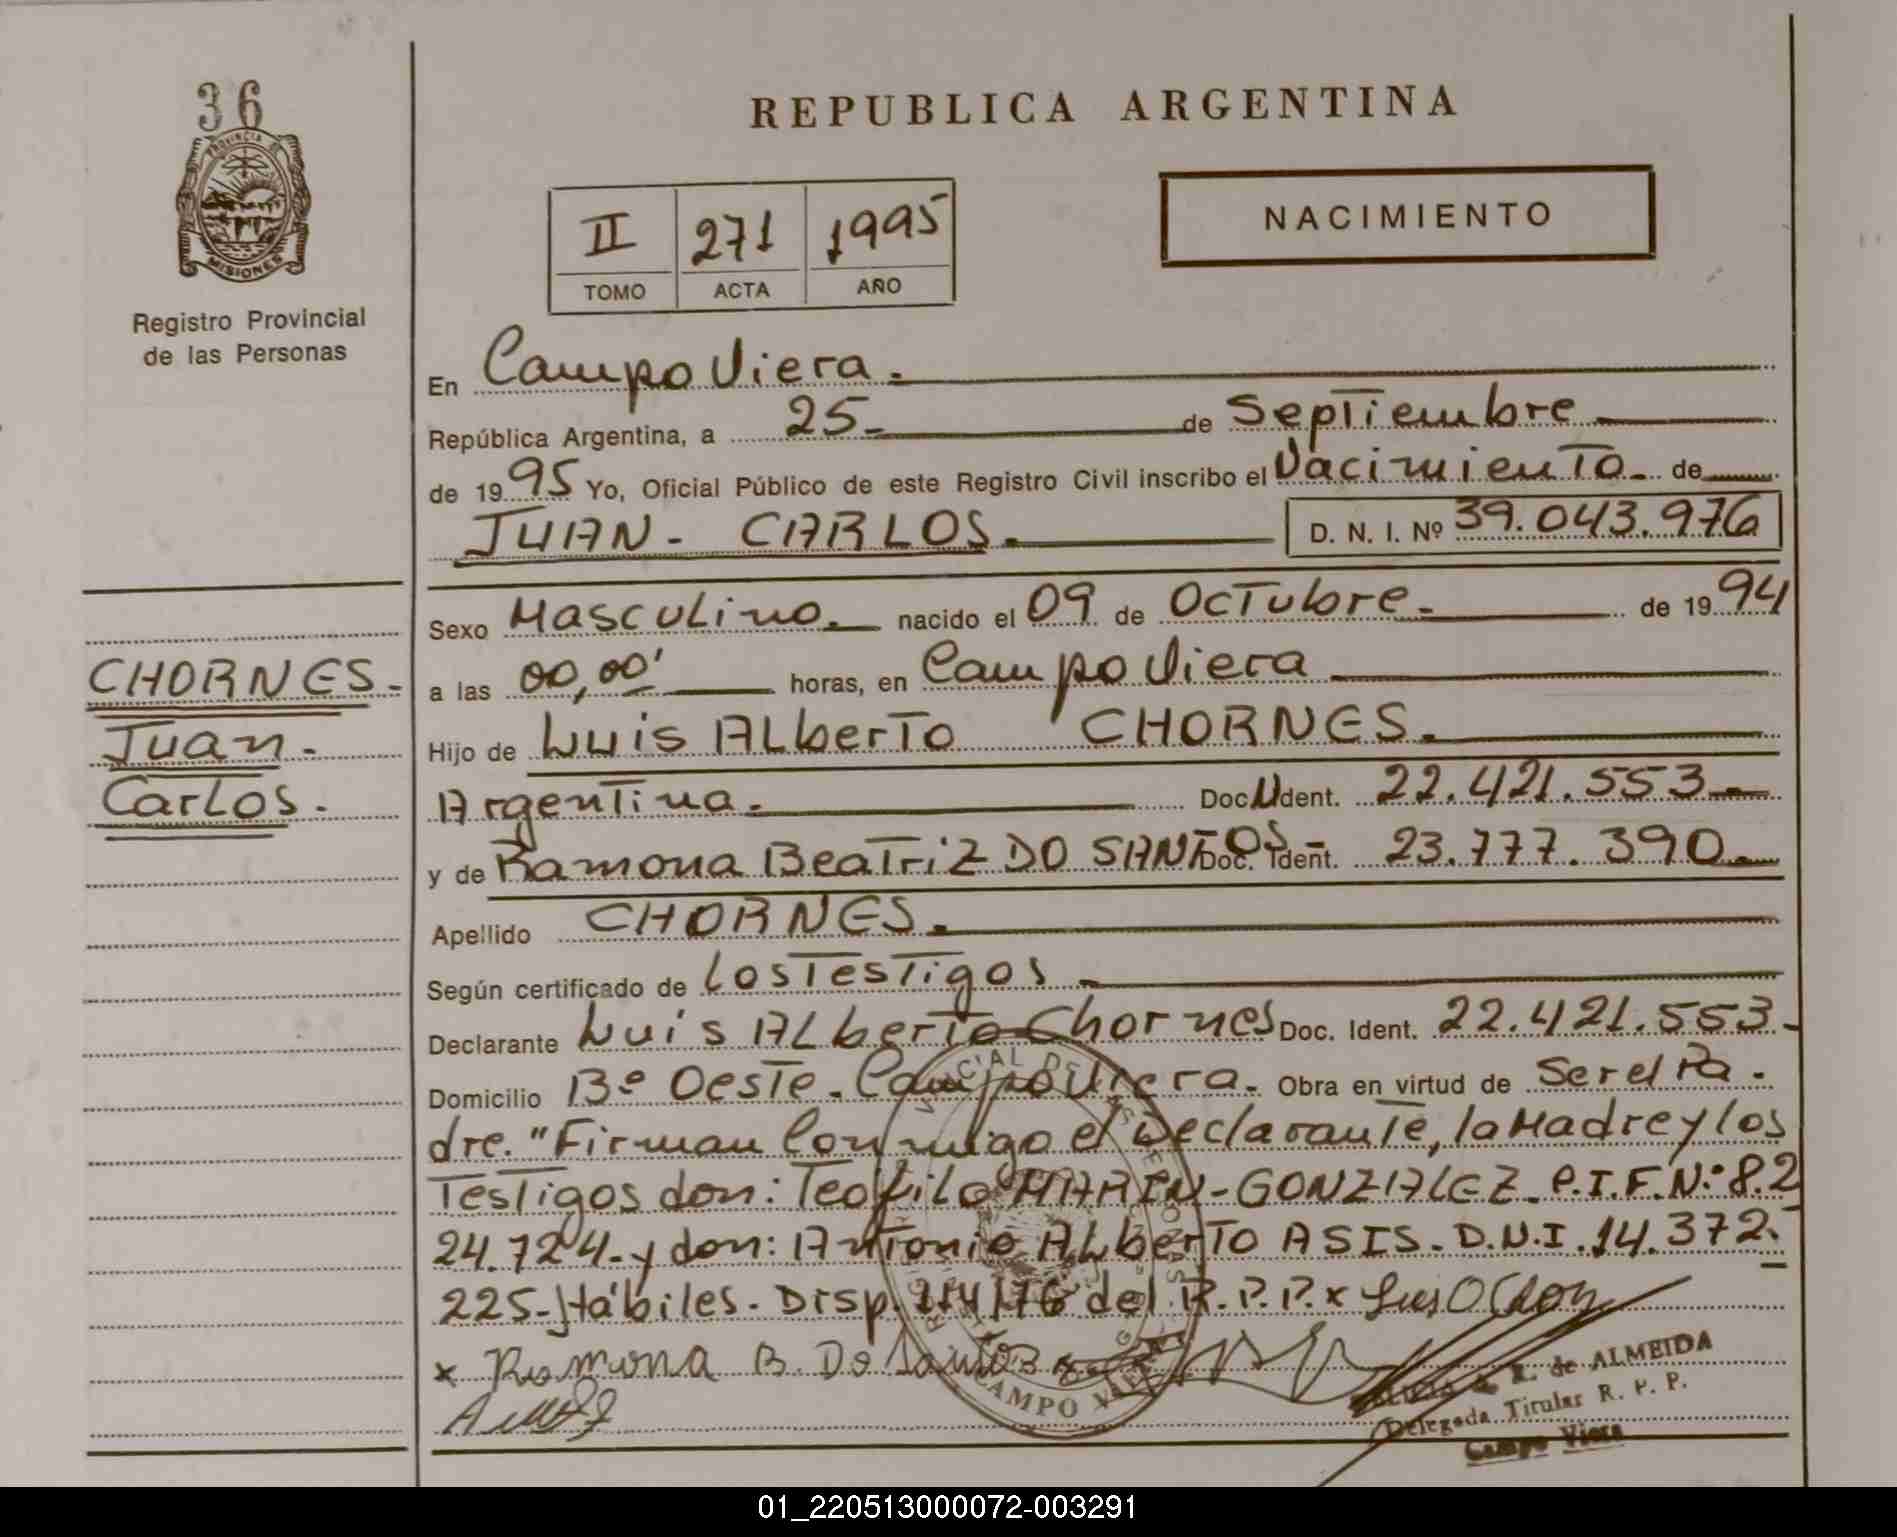 36
PROVINCIA DE
MISIONES
Registro Provincial
de las Personas
REPUBLICA ARGENTINA
II 271 1995
TOMO ACTA AÑO
NACIMIENTO
En Campo Viera.
República Argentina, a 25 de Septiembre
de 1995 Yo, Oficial Público de este Registro Civil inscribo el Nacimiento de
JUAN - CARLOS. D. N. I. Nº 39.043.976
CHORNES.
Juan.
Carlos.
Sexo Masculino. nacido el 09 de Octubre. de 1994
a las 00,00' horas, en Campo Viera
Hijo de Luis Alberto CHORNES.
Argentina. Doc. Ident. 22.421.553
y de Ramona Beatriz DO SANTOS Doc. Ident. 23.777.390
Apellido CHORNES.
Según certificado de los Testigos
Declarante Luis Alberto Chornes Doc. Ident. 22.421.553-
Domicilio Bº Oeste. Campo Viera. Obra en virtud de Ser el Pa.
dre. "Firman Conmigo el Declarante, la Madre y los
Testigos don: Teofilo MARIN-GONZALEZ. C.I.F.Nº 8.2
24.724. y don: Antonio Alberto ASIS. D.N.I. 14.372.
225- Hábiles. Disp. 114/76 del R.P.P. x
x Ramona B. Do Santos x
CAMPO VIERA
de ALMEIDA
Delegada Titular R. P. P.
Campo Viera
01_220513000072-003291